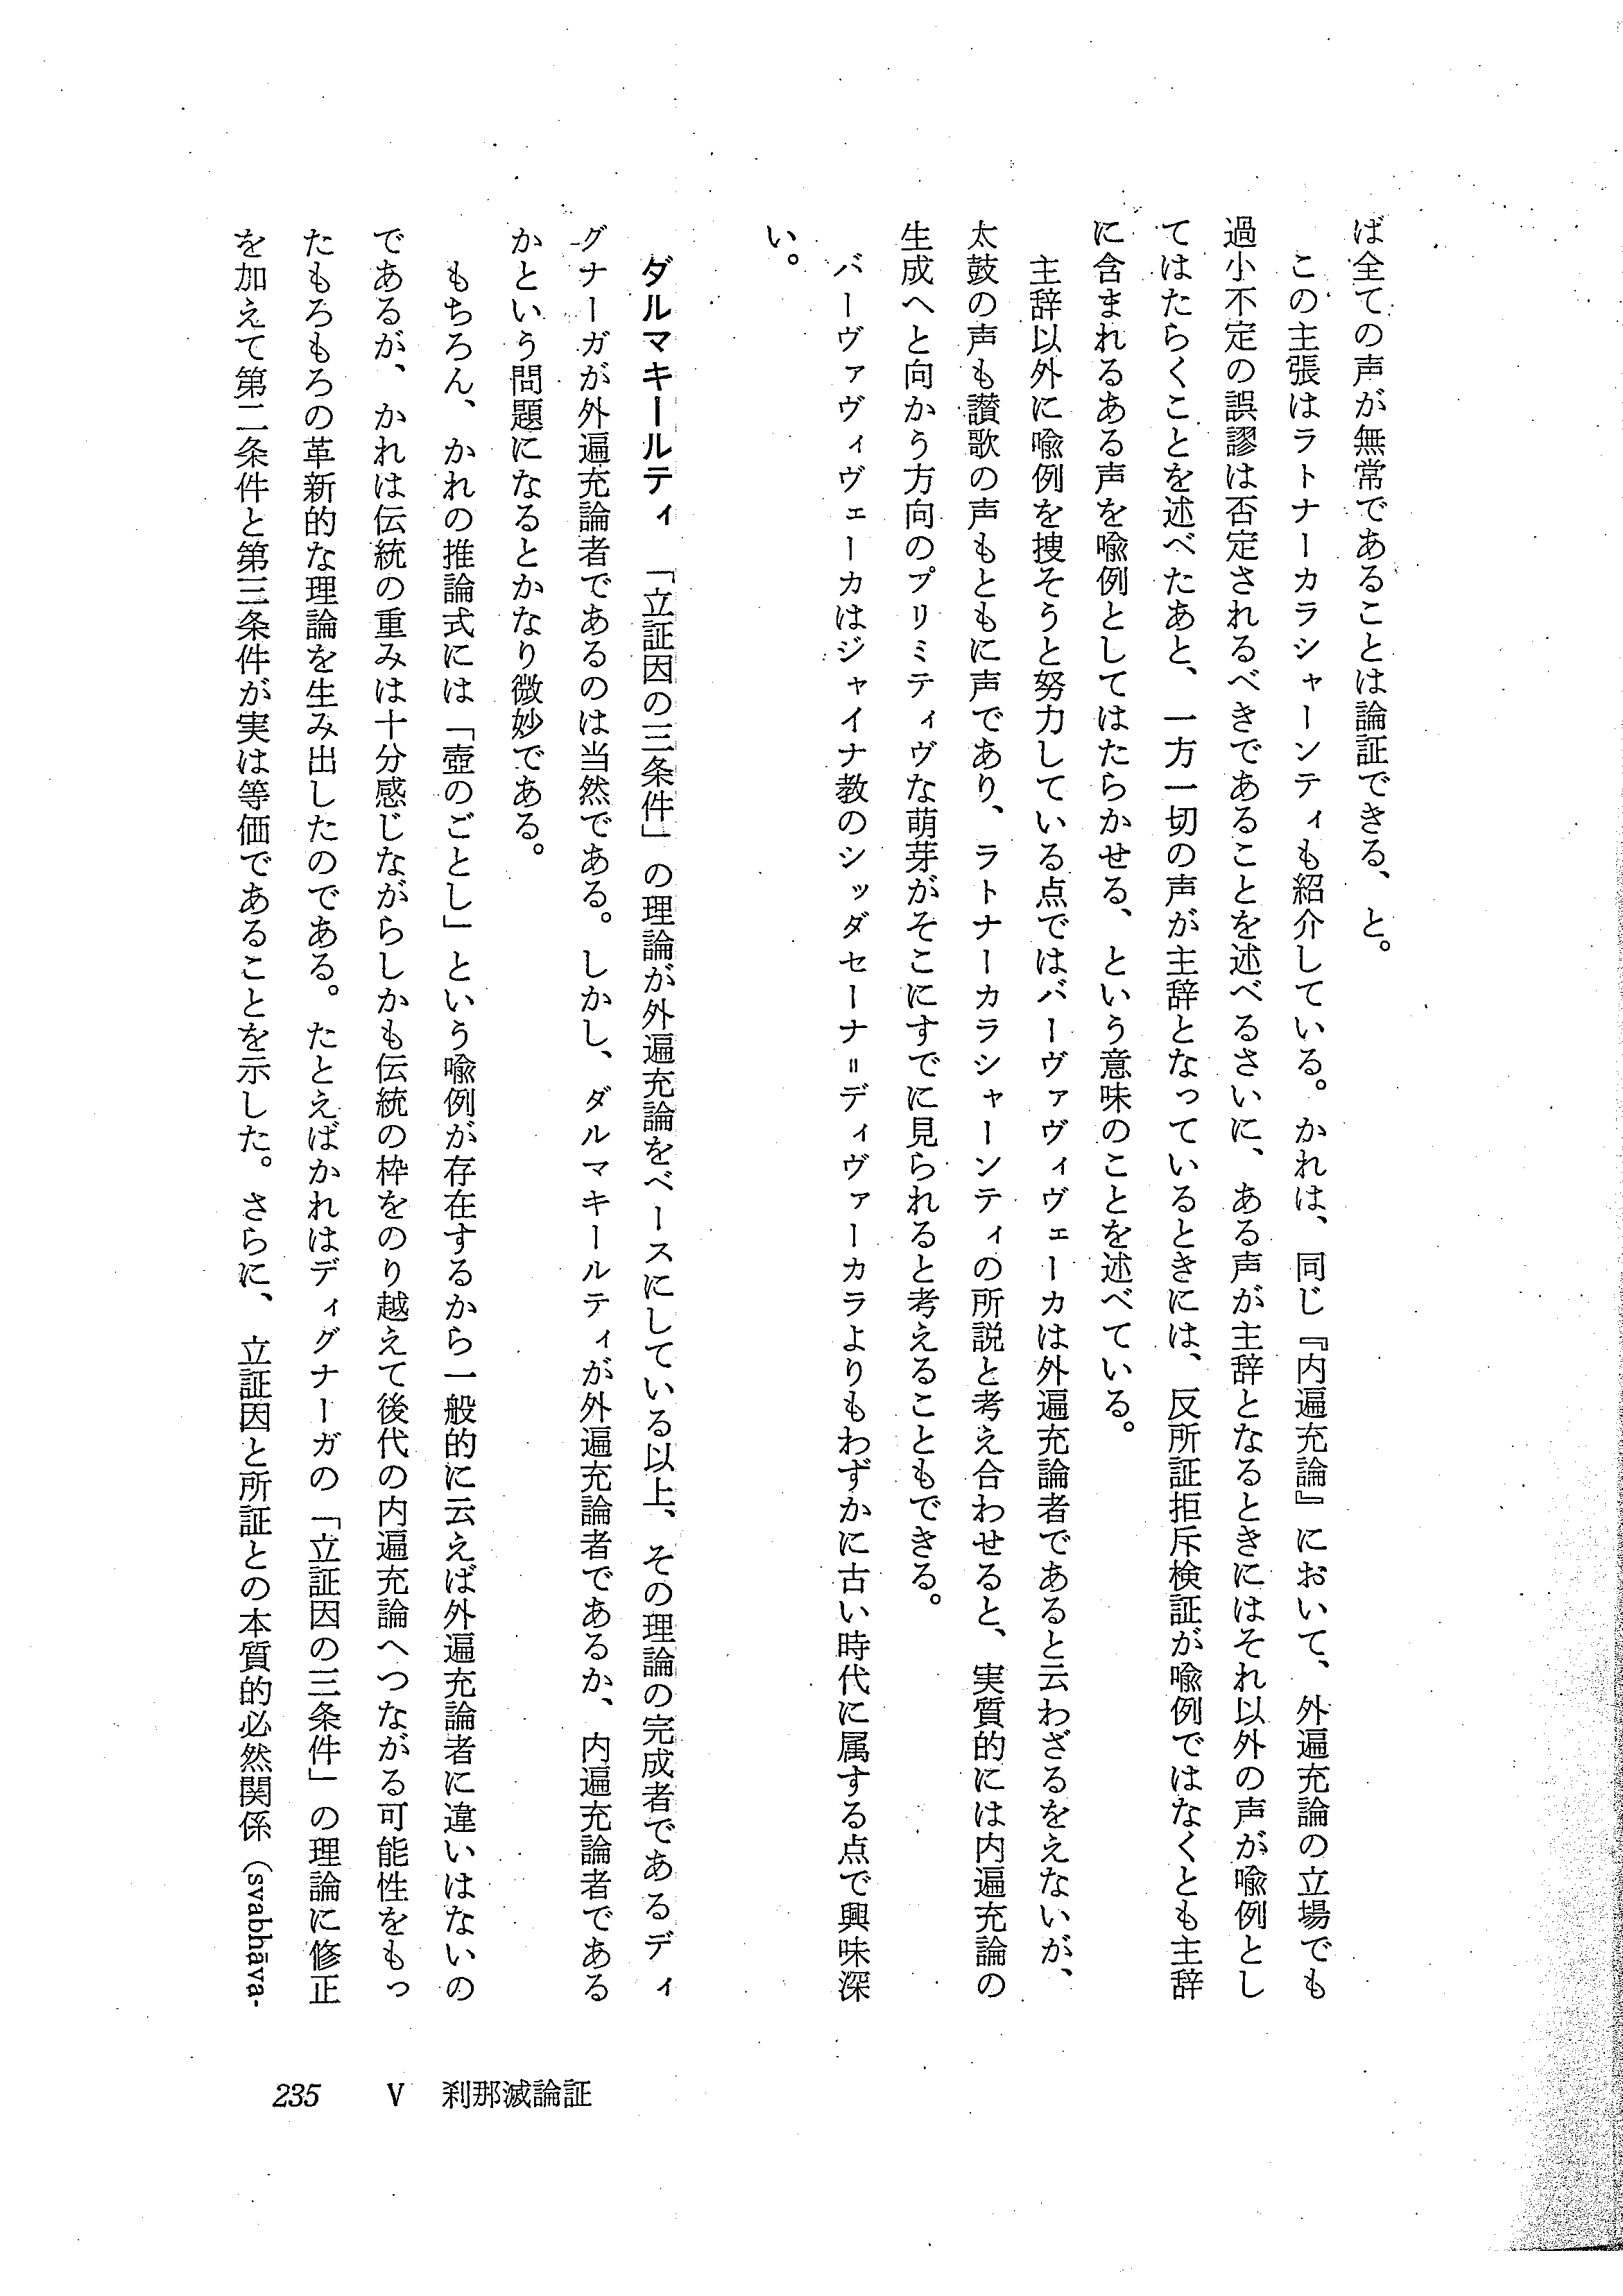 ば全ての声が無常であることは論証できる、と。
この主張はラトナーカラシャーンティも紹介している。かれは、同じ『内遍充論』において、外遍充論の立場でも
過小不定の誤謬は否定されるべきであることを述べるさいに、ある声が主辞となるときにはそれ以外の声が喩例とし
てはたらくことを述べたあと、一方一切の声が主辞となっているときには、反所証拒斥検証が喩例ではなくとも主辞
に含まれるある声を喩例としてはたらかせる、という意味のことを述べている。
主辞以外に喩例を捜そうと努力している点ではバーヴァヴィヴェーカは外遍充論者であると云わざるをえないが、
太鼓の声も讃歌の声もともに声であり、ラトナーカラシャーンティの所説と考え合わせると、実質的には内遍充論の
生成へと向かう方向のプリミティヴな萌芽がそこにすでに見られると考えることもできる。
バーヴァヴィヴェーカはジャイナ教のシッダセーナ=ディヴァーカラよりもわずかに古い時代に属する点で興味深
い。
ダルマキールティ 「立証因の三条件」の理論が外遍充論をベースにしている以上、その理論の完成者であるディ
グナーガが外遍充論者であるのは当然である。しかし、ダルマキールティが外遍充論者であるか、内遍充論者である
かという問題になるとかなり微妙である。
もちろん、かれの推論式には「壺のごとし」という喩例が存在するから一般的に云えば外遍充論者に違いはないの
であるが、かれは伝統の重みは十分感じながらしかも伝統の枠をのり越えて後代の内遍充論へつながる可能性をもっ
たもろもろの革新的な理論を生み出したのである。たとえばかれはディグナーガの「立証因の三条件」の理論に修正
を加えて第二条件と第三条件が実は等価であることを示した。さらに、立証因と所証との本質的必然関係（svabhāva-
235 V 刹那滅論証